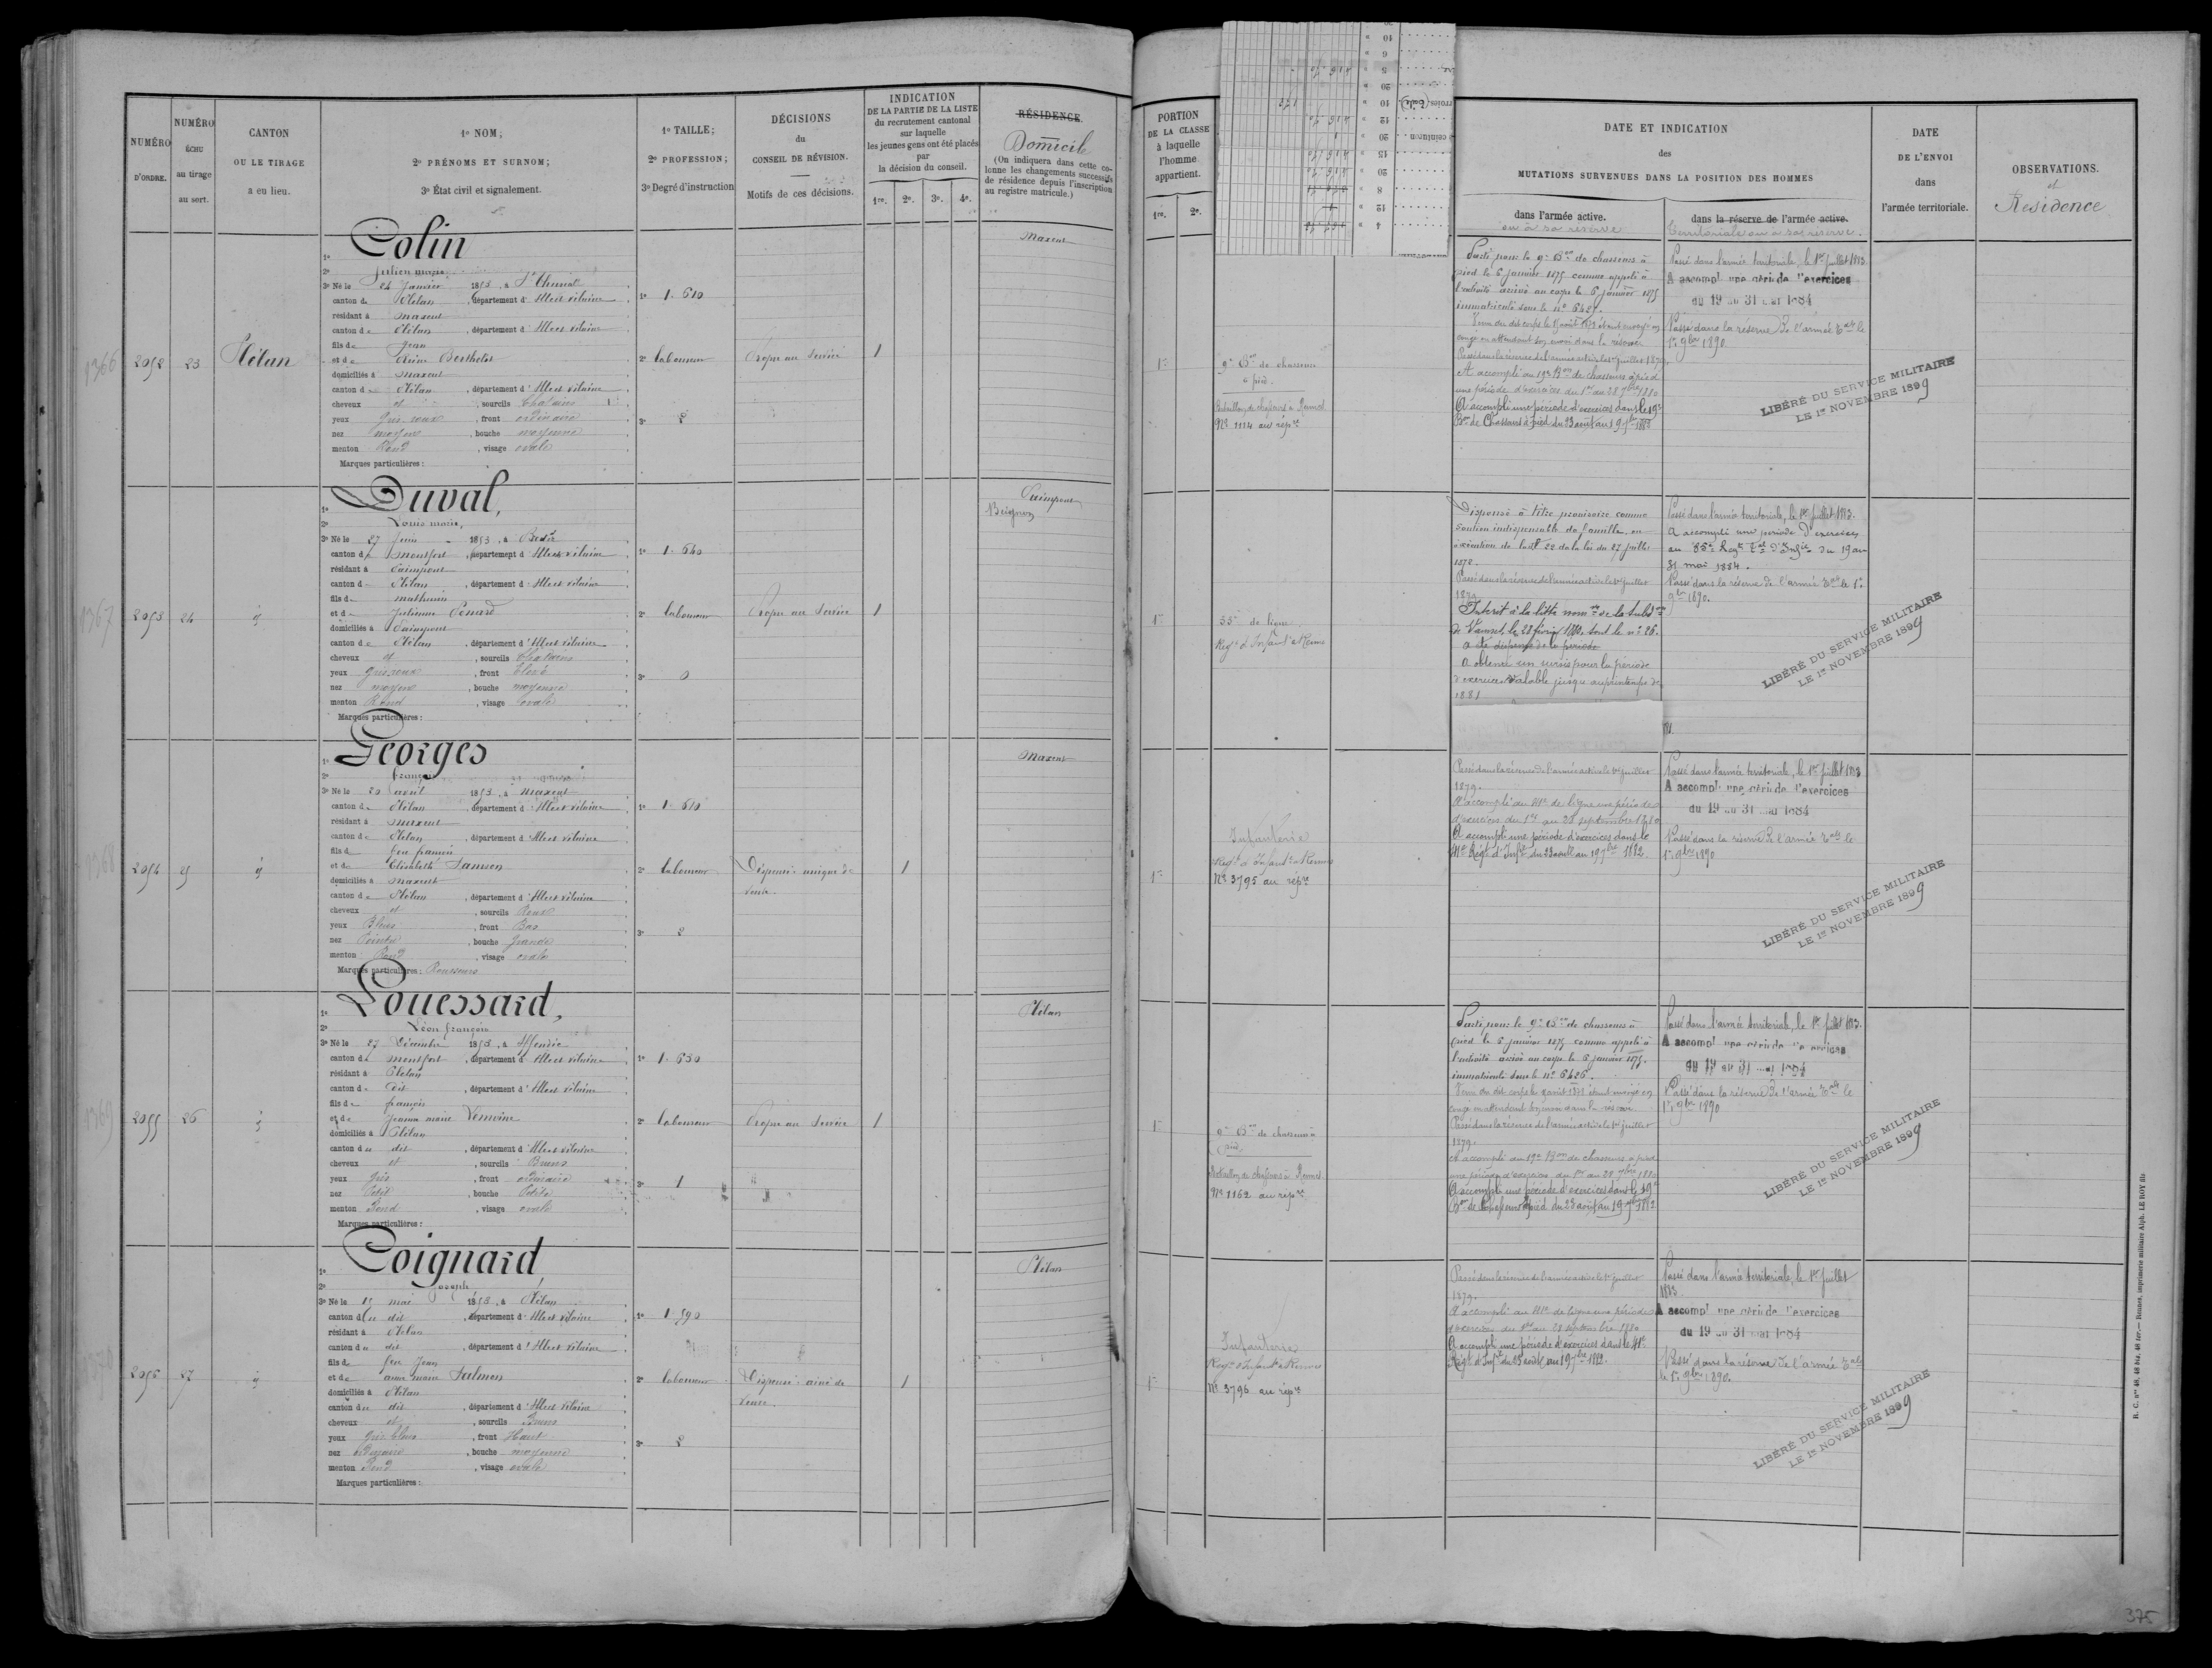 NUMÉRO
D'ORDRE.
NUMÉRO
ÉCHU
au tirage
au sort.
CANTON
OU LE TIRAGE
a eu lieu.
1º NOM;
2º PRÉNOMS ET SURNOM;
3º État civil et signalement.
1º TAILLE;
2º PROFESSION;
3º Degré d'instruction
DÉCISIONS
du
CONSEIL DE RÉVISION.
Motifs de ces décisions.
INDICATION
DE LA PARTIE DE LA LISTE
du recrutement cantonal
sur laquelle
les jeunes gens ont été placés
par
la décision du conseil.
1re. 2e. 3e. 4e.
RÉSIDENCE.
Domicile
(On indiquera dans cette co-
lonne les changements successifs
de résidence depuis l'inscription
au registre matricule.)
PORTION
DE LA CLASSE
à laquelle
l'homme
appartient.
1re. 2e.
DATE ET INDICATION
des
MUTATIONS SURVENUES DANS LA POSITION DES HOMMES
dans l'armée active.
ou à sa réserve
dans la réserve de l'armée active.
territoriale ou à sa réserve.
DATE
DE L'ENVOI
dans
l'armée territoriale.
OBSERVATIONS.
et
Résidence
1366
2952 23 Plélan
1º Colin
2º Julien marie
3º Né le 24 Janvier 1853, à
canton de Plélan, département d'Ille et Vilaine
résidant à Maxent
canton de Plélan, département d'Ille et Vilaine
fils de Jean
et de Reine Berthelot
domiciliés à Maxent
canton de Plélan, département d'Ille et Vilaine
cheveux et, sourcils Châtains
yeux Gris roux, front ordinaire
nez moyen, bouche moyenne
menton Rond, visage ovale
Marques particulières:
1º 1-610
2º laboureur
3º 2
Propre au Service
1
Maxent
1re
9e Bon de chasseurs
à pied.
Bataillon de chasseurs à Rennes
No 1114 au répre
Parti pour le 9e Bon de chasseurs à
pied le 6 janvier 1875 comme appelé à
l'activité arrivé au corps le 6 janvier 1875
immatriculé sous le no
congé en attendant son envoi dans la réserve
Passé dans la réserve de l'armée active le 1er juillet 1879.
A accompli au 19e Bon de chasseurs à pied
une période d'exercices du 1er au 28 7bre 1880
A accompli une période d'exercices dans le 19e
Bon de Chasseurs à pied du 23 août au 19 7bre 1882
Passé dans l'armée territoriale, le 1er juillet 1883
A accompl. une période d'exercices
du 19 au 31 mai 1884
Passé dans la réserve de l'armée Tale le
1er 9bre 1890
LIBÉRÉ DU SERVICE MILITAIRE
LE 1er NOVEMBRE 1899
1367
2953 24 id
1º Duval,
2º Louis marie,
3º Né le 27 Juin 1853, à Bédée
canton de Montfort, département d'Ille et Vilaine
résidant à Paimpont
canton de Plélan, département d'Ille et Vilaine
fils de mathurin
et de Julienne
domiciliés à Paimpont
canton de Plélan, département d'Ille et Vilaine
cheveux et, sourcils Châtains
yeux Gris roux, front élevé
nez moyen, bouche moyenne
menton Rond, visage ovale
Marques particulières:
1º 1-640
2º laboureur
3º 0
Propre au Service
1
Paimpont
Beignon
1re
35e de ligne
Regt d'Infant à Rennes
Dispensé à titre provisoire comme
soutien indispensable de famille en
exécution de l'art 22 de la loi du 27 juillet
1872.
Passé dans la réserve de l'armée active le 1er juillet
1879
Inscrit à la liste
de Vannes, le 28 février 1880, sous le no 26.
a été dispensé de la période
a obtenu un sursis pour la période
d'exercices valable jusqu'au printemps de
1881
Passé dans l'armée territoriale, le 1er juillet 1883.
A accompli une période d'exercices
au 85e Regt Tal d'Infie du 19 au
31 mai 1884.
Passé dans la réserve de l'armée Tale le 1er
9bre 1890.
LIBÉRÉ DU SERVICE MILITAIRE
LE 1er NOVEMBRE 1899
1368
2954 25 id
1º Georges
2º françois
3º Né le 20 avril 1853, à Maxent
canton de Plélan, département d'Ille et Vilaine
résidant à Maxent
canton de Plélan, département d'Ille et Vilaine
fils de feu
et de Elisabeth Samson
domiciliés à Maxent
canton de Plélan, département d'Ille et Vilaine
cheveux et, sourcils Roux
yeux Bleus, front Bas
nez Pointu, bouche grande
menton Rond, visage ovale
Marques particulières: Rousseurs
1º 1-610
2º laboureur
3º 2
Dispensé: unique de
veuve
1
Maxent
1re
Infanterie
Regt d'Infant à Rennes
No 3795 au répre
Passé dans la réserve de l'armée active le 1er juillet
1879.
A accompli au 41e de ligne une période
d'exercices du 1er au 28 septembre 1880
A accompli une période d'exercices dans le
41e Régt d'Infie du 23 août au 19 7bre 1882.
Passé dans l'armée territoriale, le 1er juillet 1883
A accompl. une période d'exercices
du 19 au 31 mai 1884
Passé dans la réserve de l'armée Tale le
1er 9bre 1890
LIBÉRÉ DU SERVICE MILITAIRE
LE 1er NOVEMBRE 1899
1369
2955 26 id
1º Louessard,
2º Léon françois
3º Né le 27 Décembre 1853, à Iffendic
canton de Montfort, département d'Ille et Vilaine
résidant à Plélan
canton de dit, département d'Ille et Vilaine
fils de françois
et de Jeanne marie Lemoine
domiciliés à Plélan
canton du dit, département d'Ille et Vilaine
cheveux et, sourcils Bruns
yeux Gris, front ordinaire
nez Petit, bouche Petite
menton Rond, visage ovale
Marques particulières:
1º 1-650
2º laboureur
3º 1
Propre au Service
1
Plélan
1re
9e Bon de chasseurs à
pied.
Bataillon de chasseurs à Rennes
No 1162 au répre
Parti pour le 9e Bon de chasseurs à
pied le 6 janvier 1875 comme appelé à
l'activité arrivé au corps le 6 janvier 1875.
immatriculé sous le no 6426.
congé en attendant son envoi dans la réserve
Passé dans la réserve de l'armée active le 1er juillet
1879.
A accompli au 19e Bon de chasseurs à pied
une période d'exercices du 1er au 28 7bre 1880
A accompli une période d'exercices dans le 19e
Bon de Chasseurs à pied du 23 août au 19 7bre 1882
Passé dans l'armée territoriale, le 1er juillet 1883.
A accompl. une période d'exercices
du 19 au 31 mai 1884
Passé dans la réserve de l'armée Tale le
1er 9bre 1890
LIBÉRÉ DU SERVICE MILITAIRE
LE 1er NOVEMBRE 1899
1370
2956 27 id
1º Coignard
2º Joseph
3º Né le 15 mai 1853, à Plélan
canton du dit, département d'Ille et Vilaine
résidant à Plélan
canton du dit, département d'Ille et Vilaine
fils de feu Jean
et de anne marie Salmon
domiciliés à Plélan
canton du dit, département d'Ille et Vilaine
cheveux et, sourcils Bruns
yeux Gris bleus, front Haut
nez ordinaire, bouche moyenne
menton Rond, visage ovale
Marques particulières:
1º 1-590
2º laboureur
3º 2
Dispensé: aîné de
veuve.
1
Plélan
1re
Infanterie
Regt d'Infant à Rennes
No 3796 au répre
Passé dans la réserve de l'armée active le 1er juillet
1879.
A accompli au 41e de ligne une période
d'exercices du 1er au 28 septembre 1880
A accompli une période d'exercices dans le 41e
Régt d'Infie du 23 août au 19 7bre 1882.
Passé dans l'armée territoriale, le 1er juillet
1883.
A accompl. une période d'exercices
du 19 au 31 mai 1884
Passé dans la réserve de l'armée Tale
le 1er 9bre 1890.
LIBÉRÉ DU SERVICE MILITAIRE
LE 1er NOVEMBRE 1899
R. C. nos 48, 48 bis, 48 ter.— Rennes, imprimerie militaire Alph. LE ROY fils
375